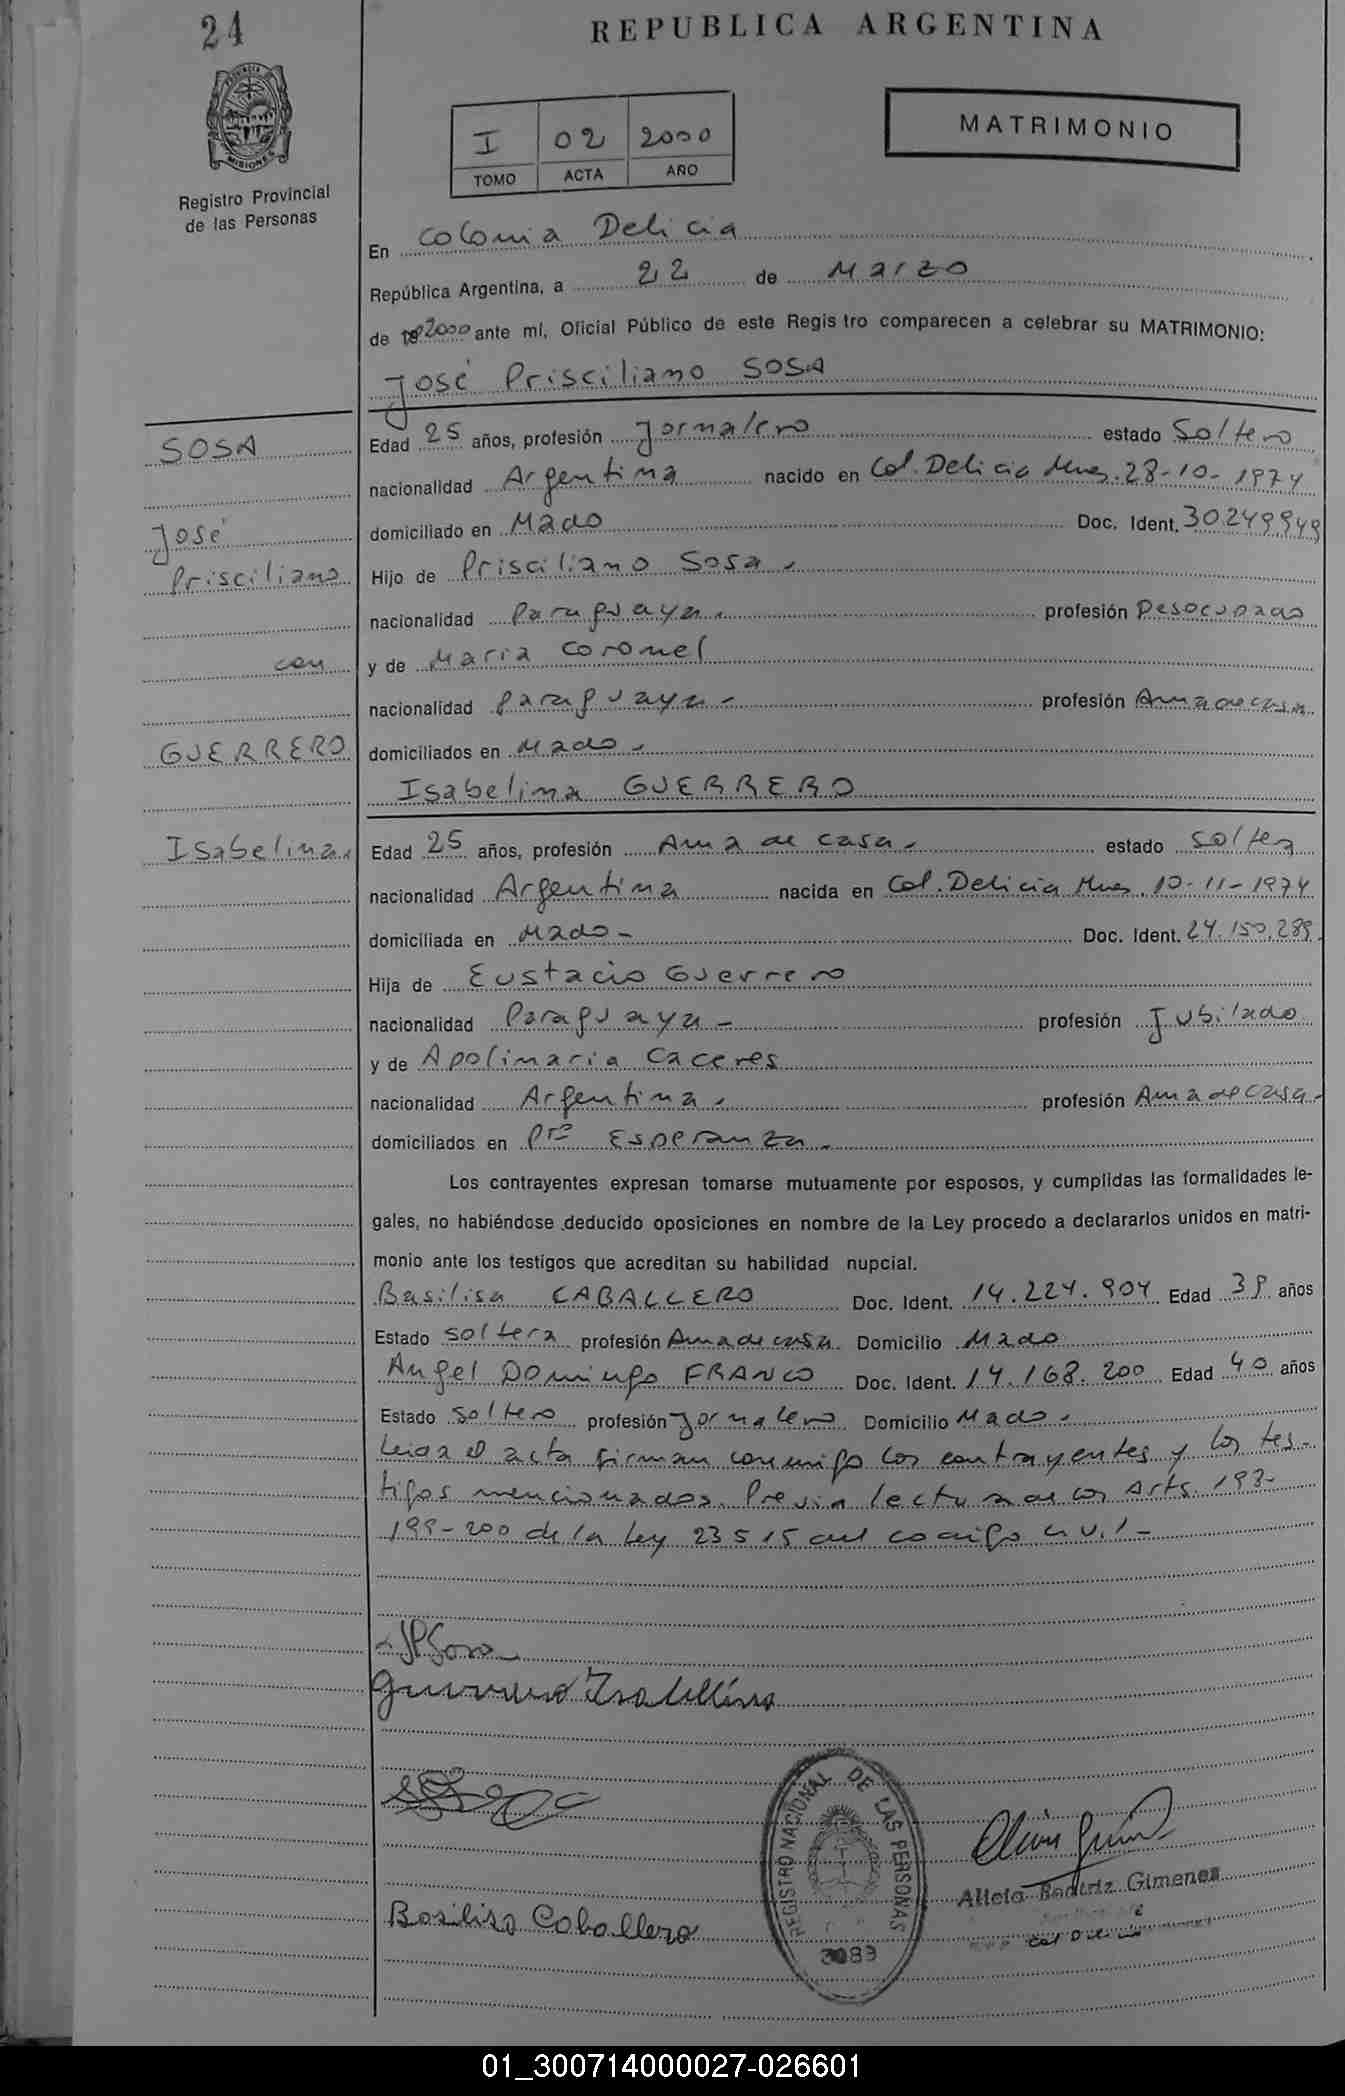 24
REPUBLICA ARGENTINA
PROVINCIA DE MISIONES
Registro Provincial
de las Personas
I 02 2000
TOMO ACTA AÑO
MATRIMONIO
En Colonia Delicia
República Argentina, a 22 de Marzo
de 2000 ante mí, Oficial Público de este Registro comparecen a celebrar su MATRIMONIO:
José Prisciliano SOSA
SOSA
José
Prisciliano
con
GUERRERO
Isabelina
Edad 25 años, profesión Jornalero estado Soltero
nacionalidad Argentina nacido en Col. Delicia Mnes. 28-10-1974
domiciliado en Mado Doc. Ident. 30249949
Hijo de Prisciliano Sosa.
nacionalidad Paraguaya. profesión Desocupado
y de Maria Coronel
nacionalidad paraguaya - profesión Ama de casa
domiciliados en Mado.
Isabelina GUERRERO
Edad 25 años, profesión Ama de casa. estado soltera
nacionalidad Argentina nacida en Col. Delicia Mnes. 10-11-1974
domiciliada en Mado - Doc. Ident. 24.150.289.
Hija de Eustacio Guerrero
nacionalidad Paraguaya - profesión Jubilado
y de Apolinaria Caceres
nacionalidad Argentina. profesión Ama de casa.
domiciliados en Pto Esperanza.
Los contrayentes expresan tomarse mutuamente por esposos, y cumplidas las formalidades le-
gales, no habiéndose deducido oposiciones en nombre de la Ley procedo a declararlos unidos en matri-
monio ante los testigos que acreditan su habilidad nupcial.
Basilisa CABALLERO Doc. Ident. 14.224.904 Edad 39 años
Estado soltera profesión Ama de casa Domicilio Mado
Angel Domingo FRANCO Doc. Ident. 14.168.200 Edad 40 años
Estado soltero profesión Jornalero Domicilio Mado.
Leida el acta firman conmigo los contrayentes y los tes-
tigos mencionados. Previa lectura de los Arts. 198-
199-200 de la Ley 23515 del codigo civil -
JPSosa
Guerrero Isabelina
Basilisa Caballero
REGISTRO NACIONAL DE LAS PERSONAS
3089
Alicia Beatriz Gimenez
Col Delicia
01_300714000027-026601